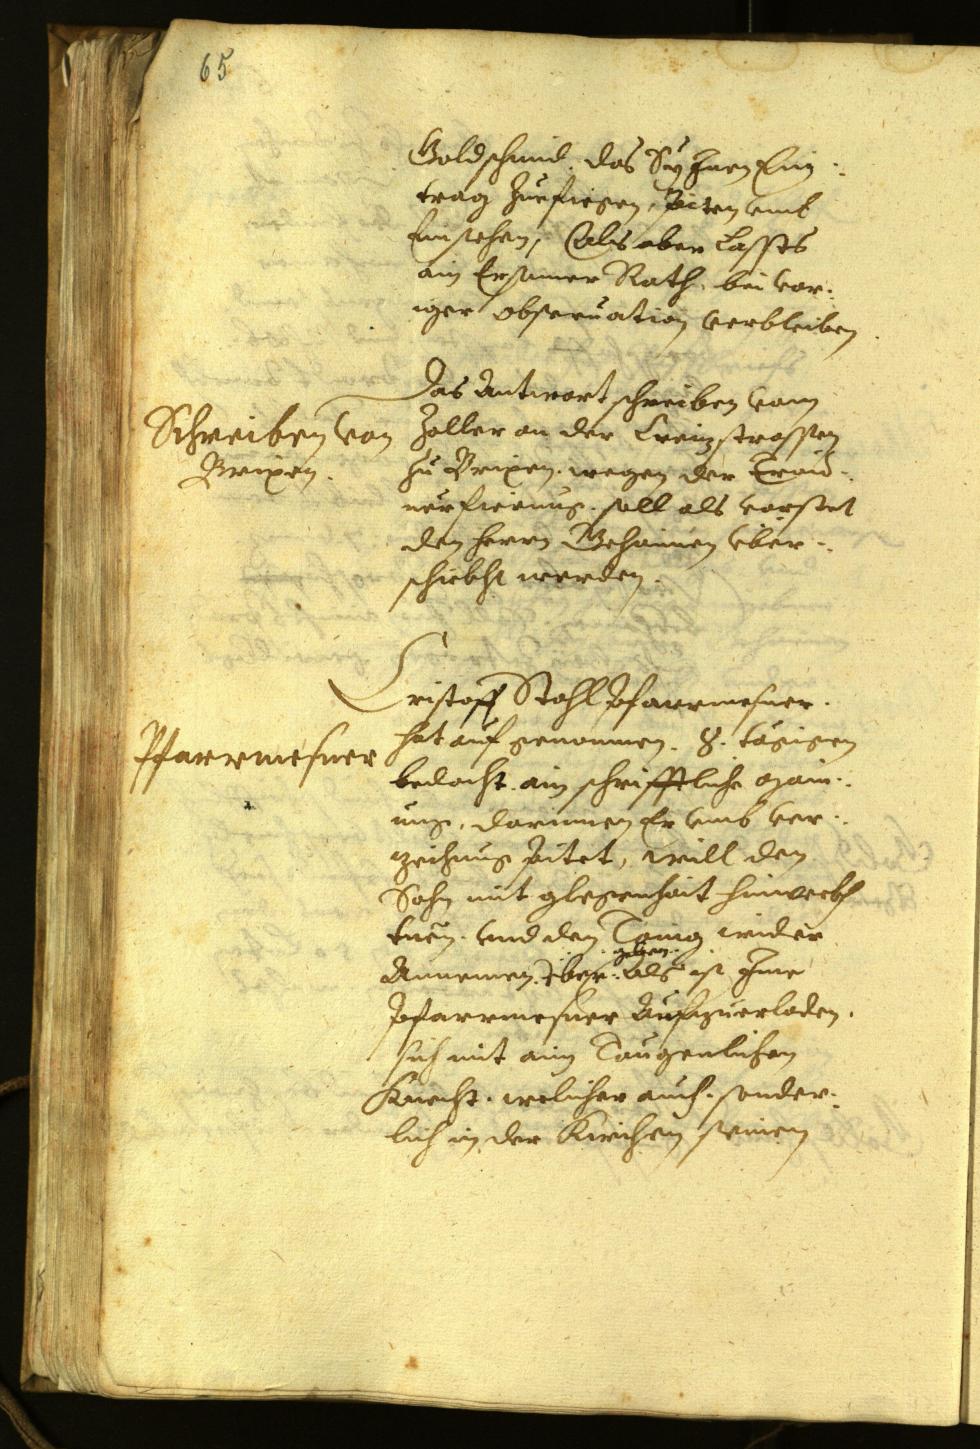 65
Goldschmid. das Sy Jnen Ein:
trag zuefiegen, Piten umb
Einsehen, Als aber Lassts
ain Ersamer Rath. bei vor:
iger observation verbleiben.
Schreiben von
Brixen.
Das Antwort schreiben vom
Zoller an der Creizstrassen
zu Brixen. wegen der Traid
soll als vorstet
den herrn Gehaimen über:
schickht werden.
Pfarrmesner
Cristoff Stahl Pfarrmesner.
hat auf genommen. 8. tägigen
bedacht. ain schrifftliche main:
ung, darinnen Er umb ver:
zeihung Pitet, will den
Sohn mit glegenhait hinweckh
tuen. und den wider
Annemen. aber. Als ist Jme
Pfarrmesner Aufzuerladen.
sich mit aim Taugenlichen
Knecht. welicher auch. sonder:
lich in der Kirchen seinen